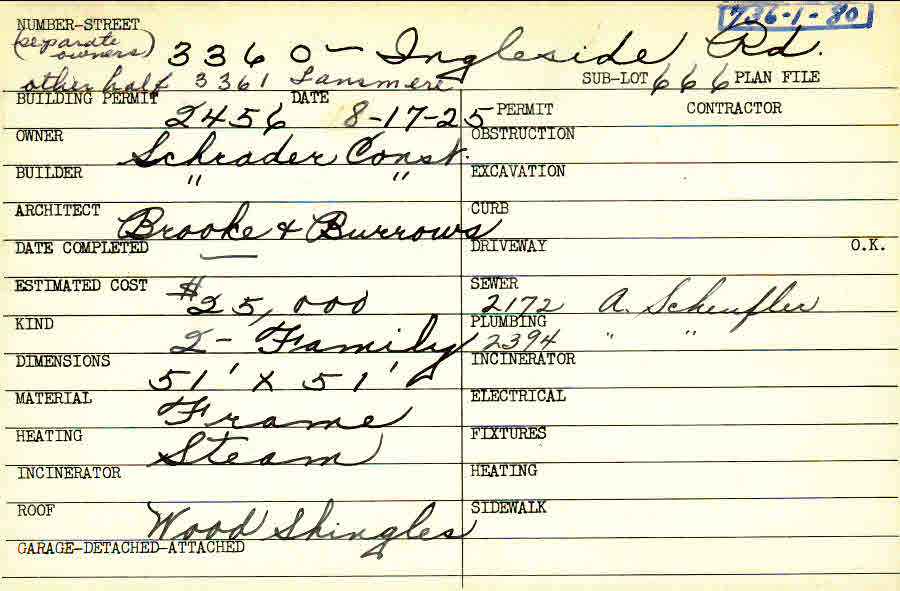 NUMBER-STREET 736-1-80
(separate owners) 3360 - Ingleside Rd.
other half 3361 Lansmere SUB-LOT 666 PLAN FILE
BUILDING PERMIT 2456 DATE 8-17-25 PERMIT CONTRACTOR
OWNER Schrader Const. OBSTRUCTION
BUILDER " " EXCAVATION
ARCHITECT Brooke & Burrows CURB
DATE COMPLETED — DRIVEWAY O.K.
ESTIMATED COST $25,000 SEWER 2172 A. Scheufler
KIND 2-Family PLUMBING 2394 " "
DIMENSIONS 51' X 51' INCINERATOR
MATERIAL Frame ELECTRICAL
HEATING Steam FIXTURES
INCINERATOR HEATING
ROOF Wood Shingles SIDEWALK
GARAGE-DETACHED-ATTACHED